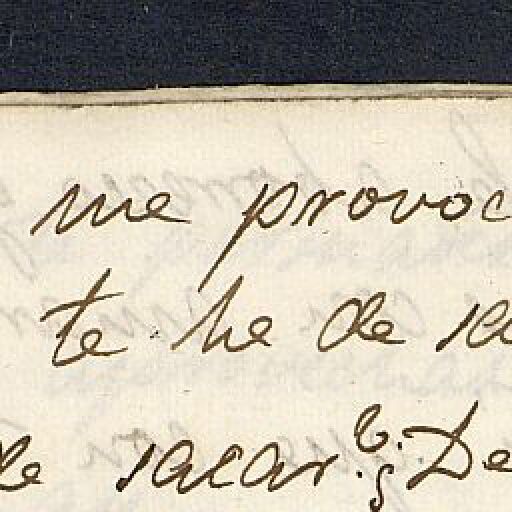 me provoc
te he de sa
de sacar? ¿De